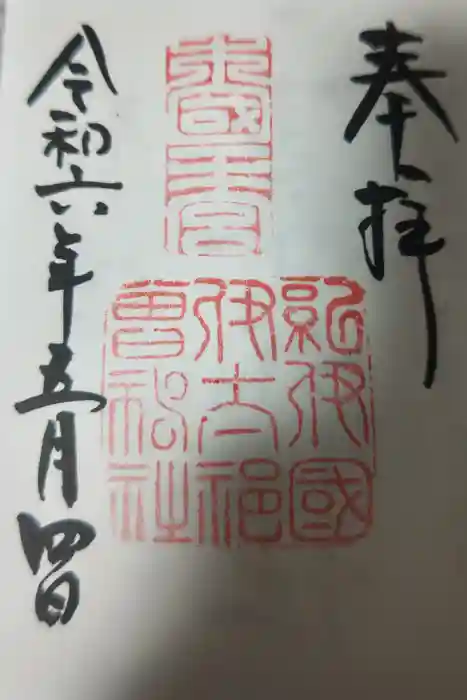 奉拝
紀伊國
伊太祁
曽神社
令和六年五月四日